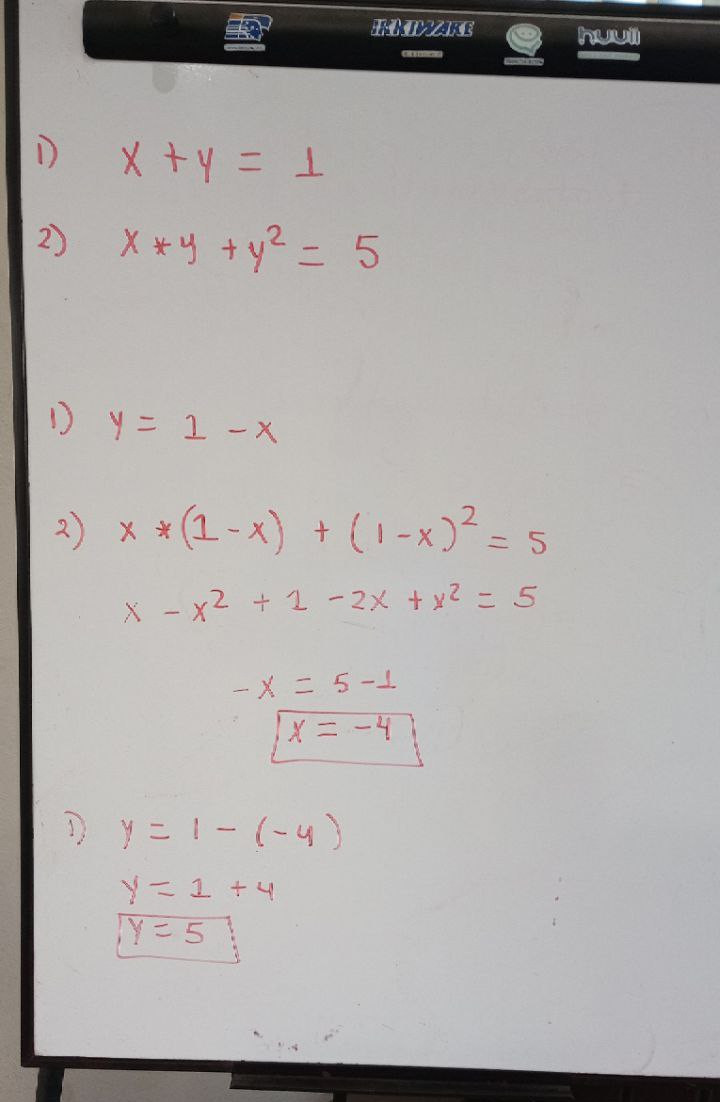 IKKIWAKE
huuli
1) x + y = 1
2) x * y + y² = 5
1) y = 1 - x
2) x * (1 - x) + (1 - x)² = 5
x - x² + 1 - 2x + x² = 5
-x = 5 - 1
x = -4
1) y = 1 - (-4)
y = 1 + 4
y = 5